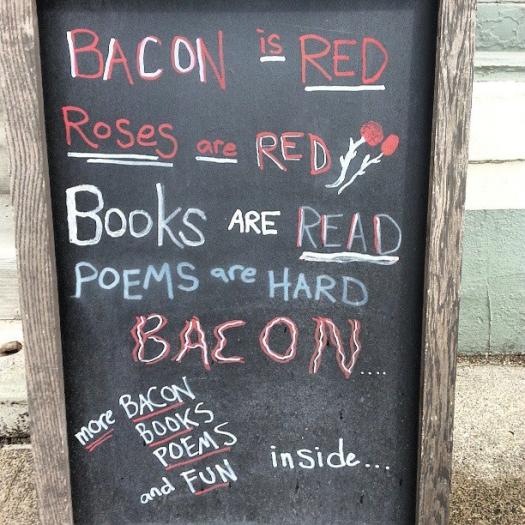 BACON is RED
Roses are RED
BOOKS ARE READ
POEMS are HARD
BACON....
more BACON
BOOKS
POEMS
and FUN
inside...